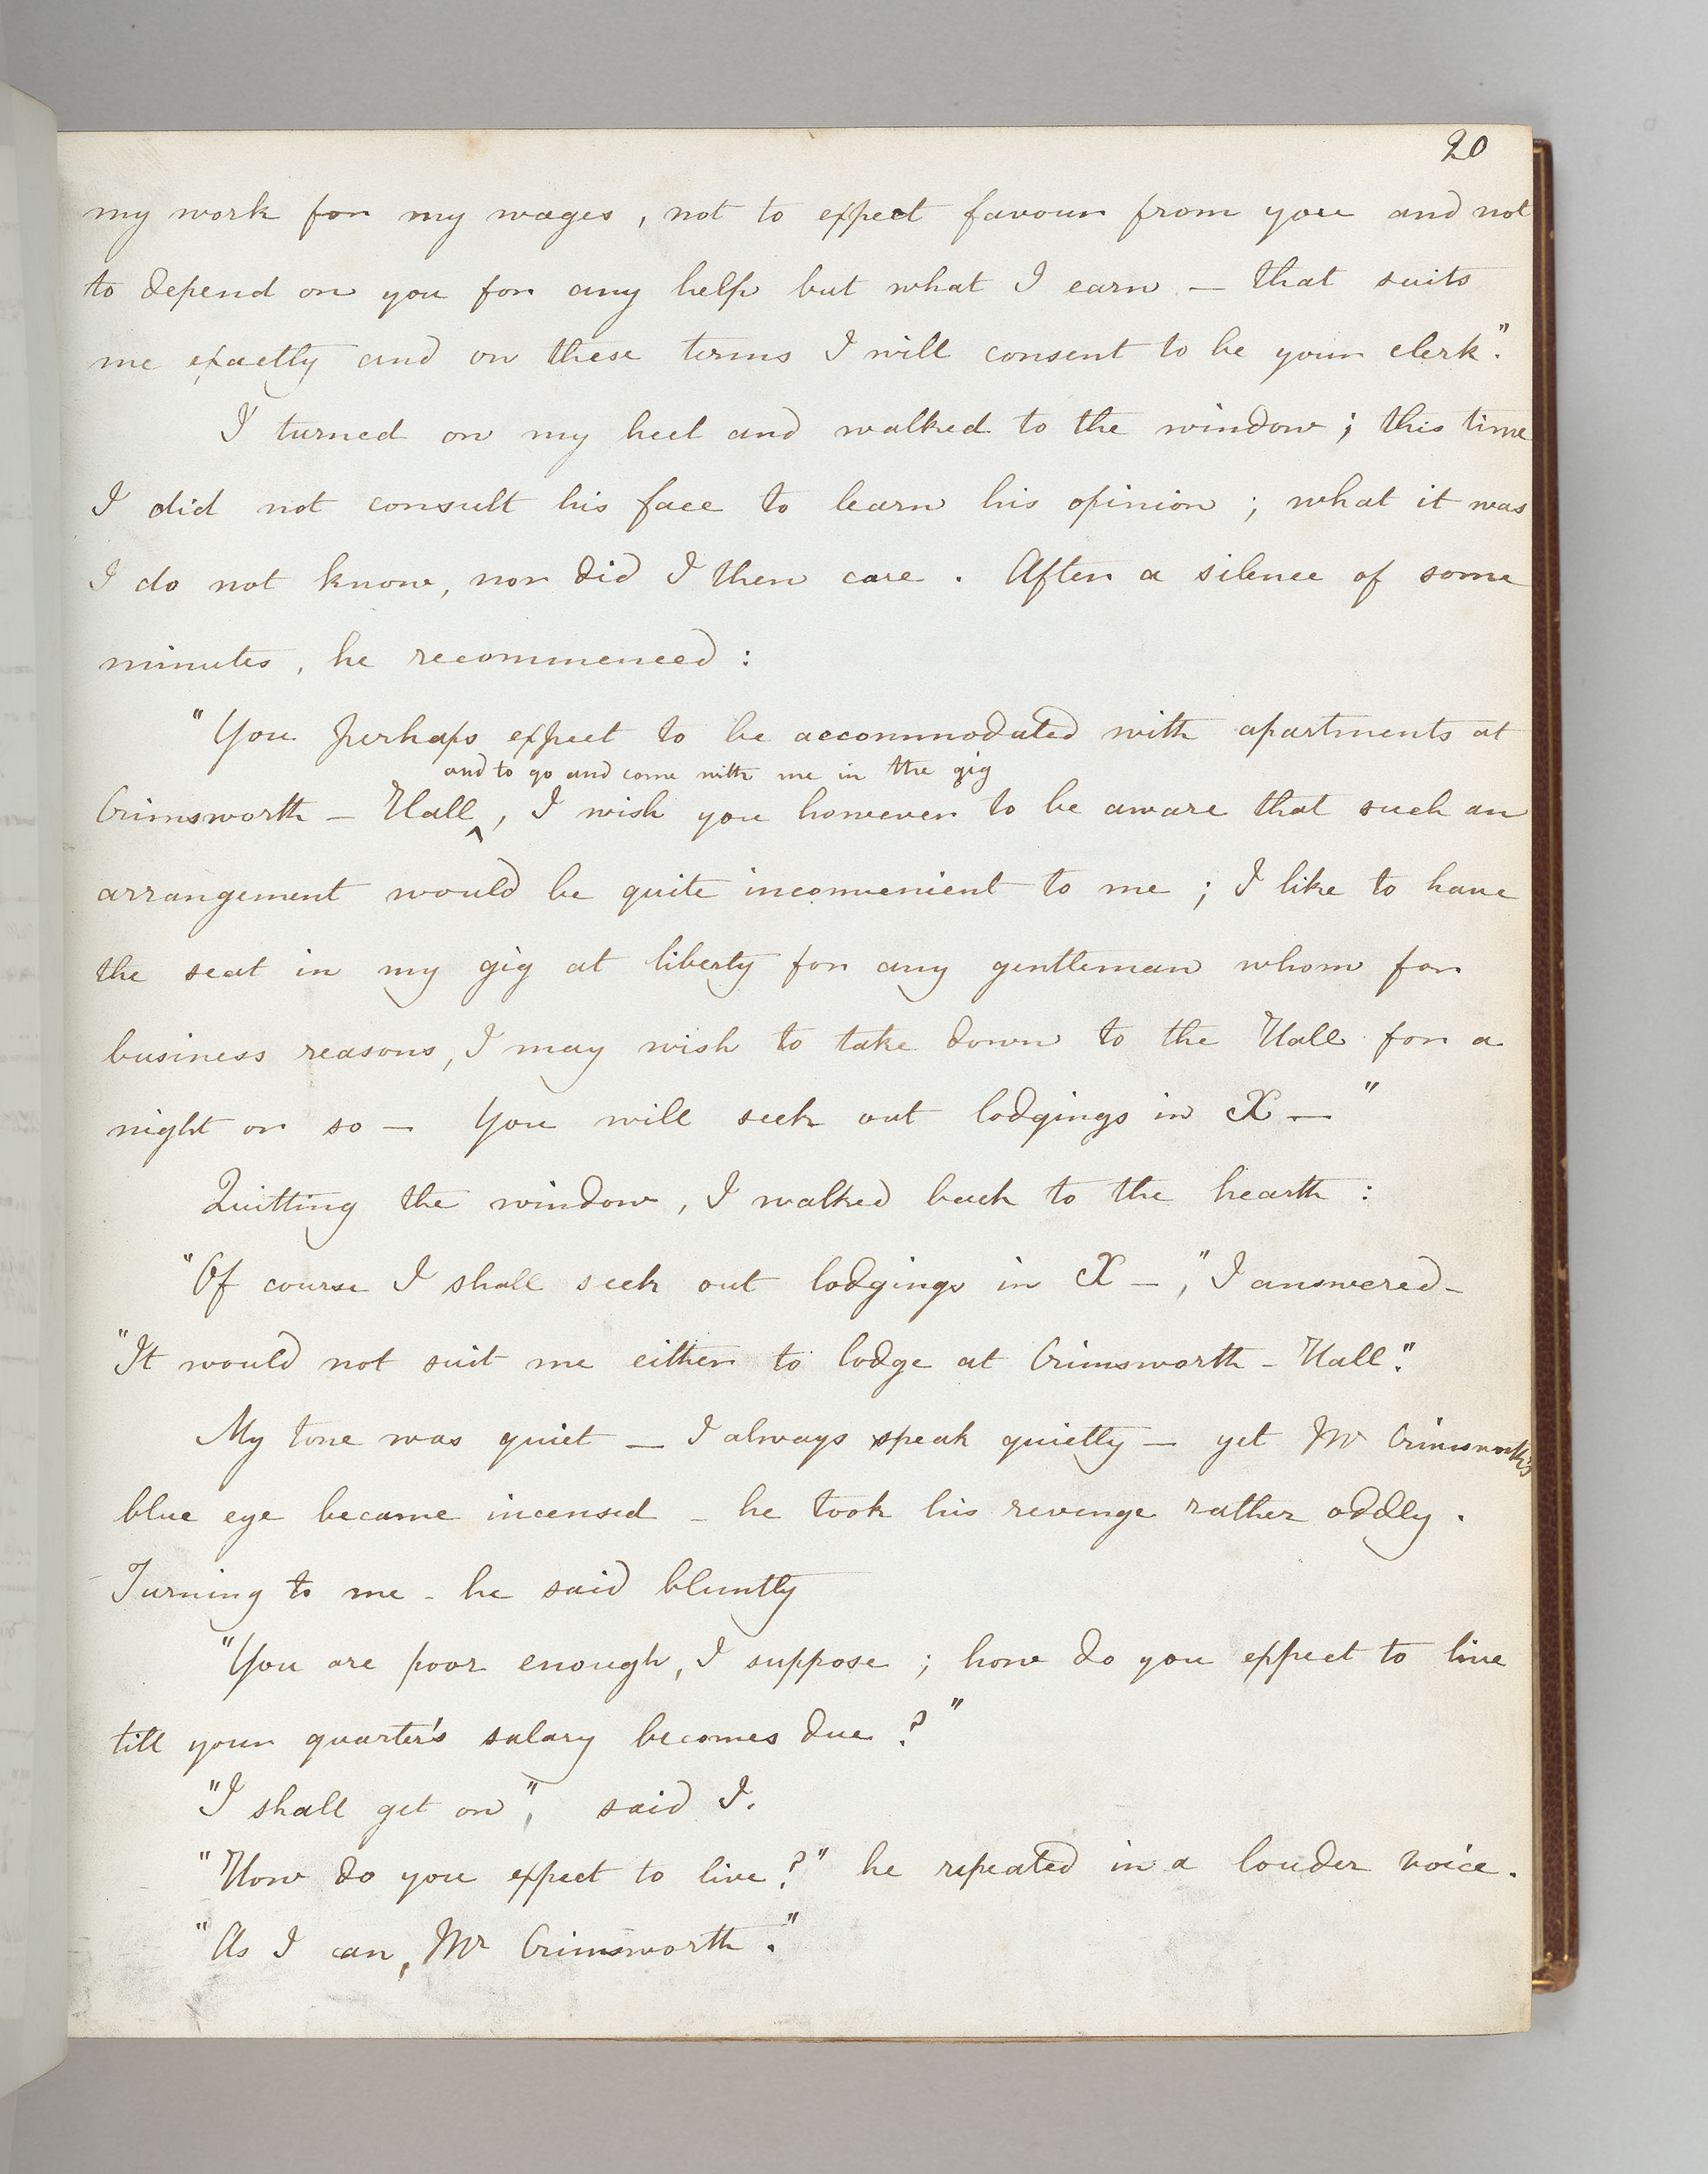 20
my work for my wages, not to expect favour from you and not
to depend on you for any help but what I earn — that suits
me exactly and on these terms I will consent to be your clerk."
I turned on my heel and walked to the window; this time
I did not consult his face to learn his opinion; what it was
I do not know, nor did I then care. After a silence of some
minutes, he recommenced:
"You perhaps expect to be accommodated with apartments at
and to go and come with me in the gig
Crimsworth — Hall ‸, I wish you however to be aware that such an
arrangement would be quite inconvenient to me; I like to have
the seat in my gig at liberty for any gentleman whom for
business reasons, I may wish to take down to the Hall for a
night or so — You will seek out lodgings in X —"
Quitting the window, I walked back to the hearth:
"Of course I shall seek out lodgings in X —," I answered —
"It would not suit me either to lodge at Crimsworth — Hall."
My tone was quiet — I always speak quietly — yet Mr Crimsworth's
blue eye became incensed — he took his revenge rather oddly.
Turning to me — he said bluntly
"You are poor enough, I suppose; how do you expect to live
till your quarter's salary becomes due?"
"I shall get on", said I.
"How do you expect to live?" he repeated in a louder voice.
"As I can, Mr Crimsworth."